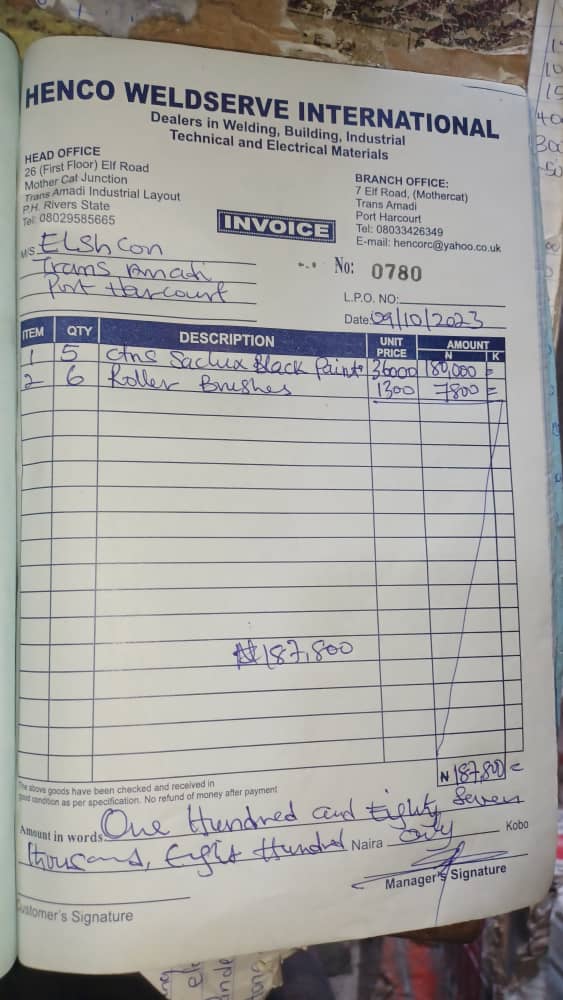 HENCO WELDSERVE INTERNATIONAL
Dealers in Welding, Building, Industrial
Technical and Electrical Materials
HEAD OFFICE
26 (First Floor) Elf Road
Mother Cat Junction
Trans Amadi Industrial Layout
P.H. Rivers State
Tel: 08029585665
BRANCH OFFICE:
7 Elf Road, (Mothercat)
Trans Amadi
Port Harcourt
Tel: 08033426349
E-mail: hencorc@yahoo.co.uk
INVOICE
No: 0780
M/S Elsh Con
Trans Amadi
Port Harcourt
L.P.O. NO:
Date: 09/10/2023
ITEM QTY DESCRIPTION UNIT PRICE AMOUNT N K
1 5 ctns Saclux Black Paint 36000 180,000 =
2 6 Roller Brushes 1300 7800 =
₦187,800
N 187,800 =
The above goods have been checked and received in
good condition as per specification. No refund of money after payment
Amount in words One Hundred and Eighty Seven
thousand, Eight Hundred Naira only Kobo
Manager's Signature
Customer's Signature